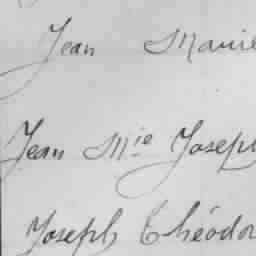 Jean Marie
Jean Mie Joseph
Joseph Théodor